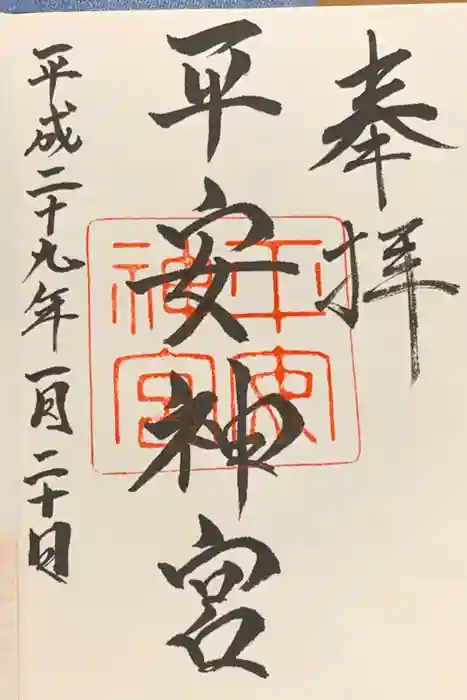 奉拝
平安神宮
平安神宮
平成二十九年一月二十日